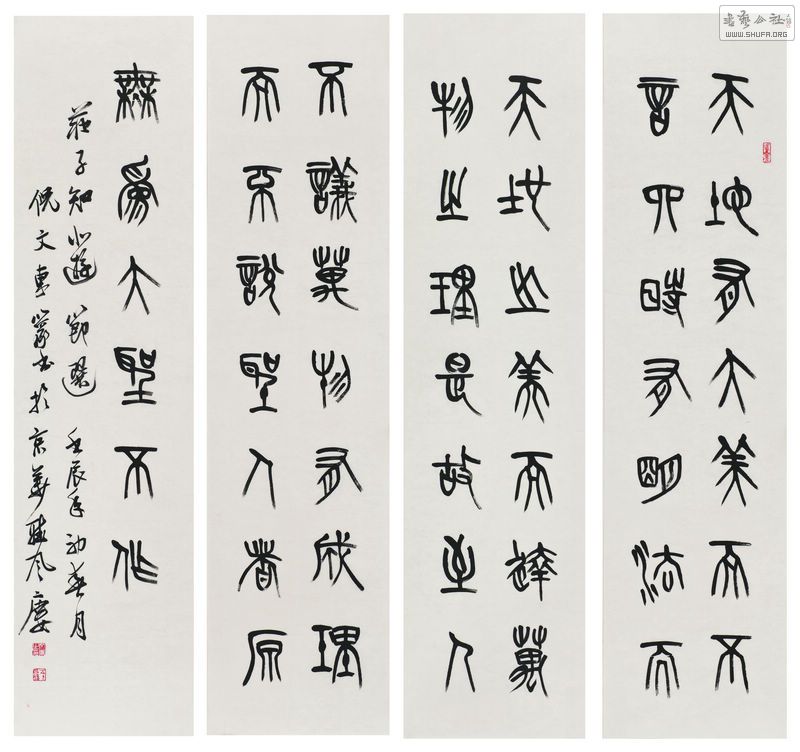 天地有大美而不
言四時有明法而
天地之美而達萬
物之理是故至人
不議萬物有成理
而不說聖人者原
無為大聖不作
莊子知北遊節選 壬辰年初春月
倪文東篆書於京華聽風廬
書藝公社
WWW.SHUFA.ORG